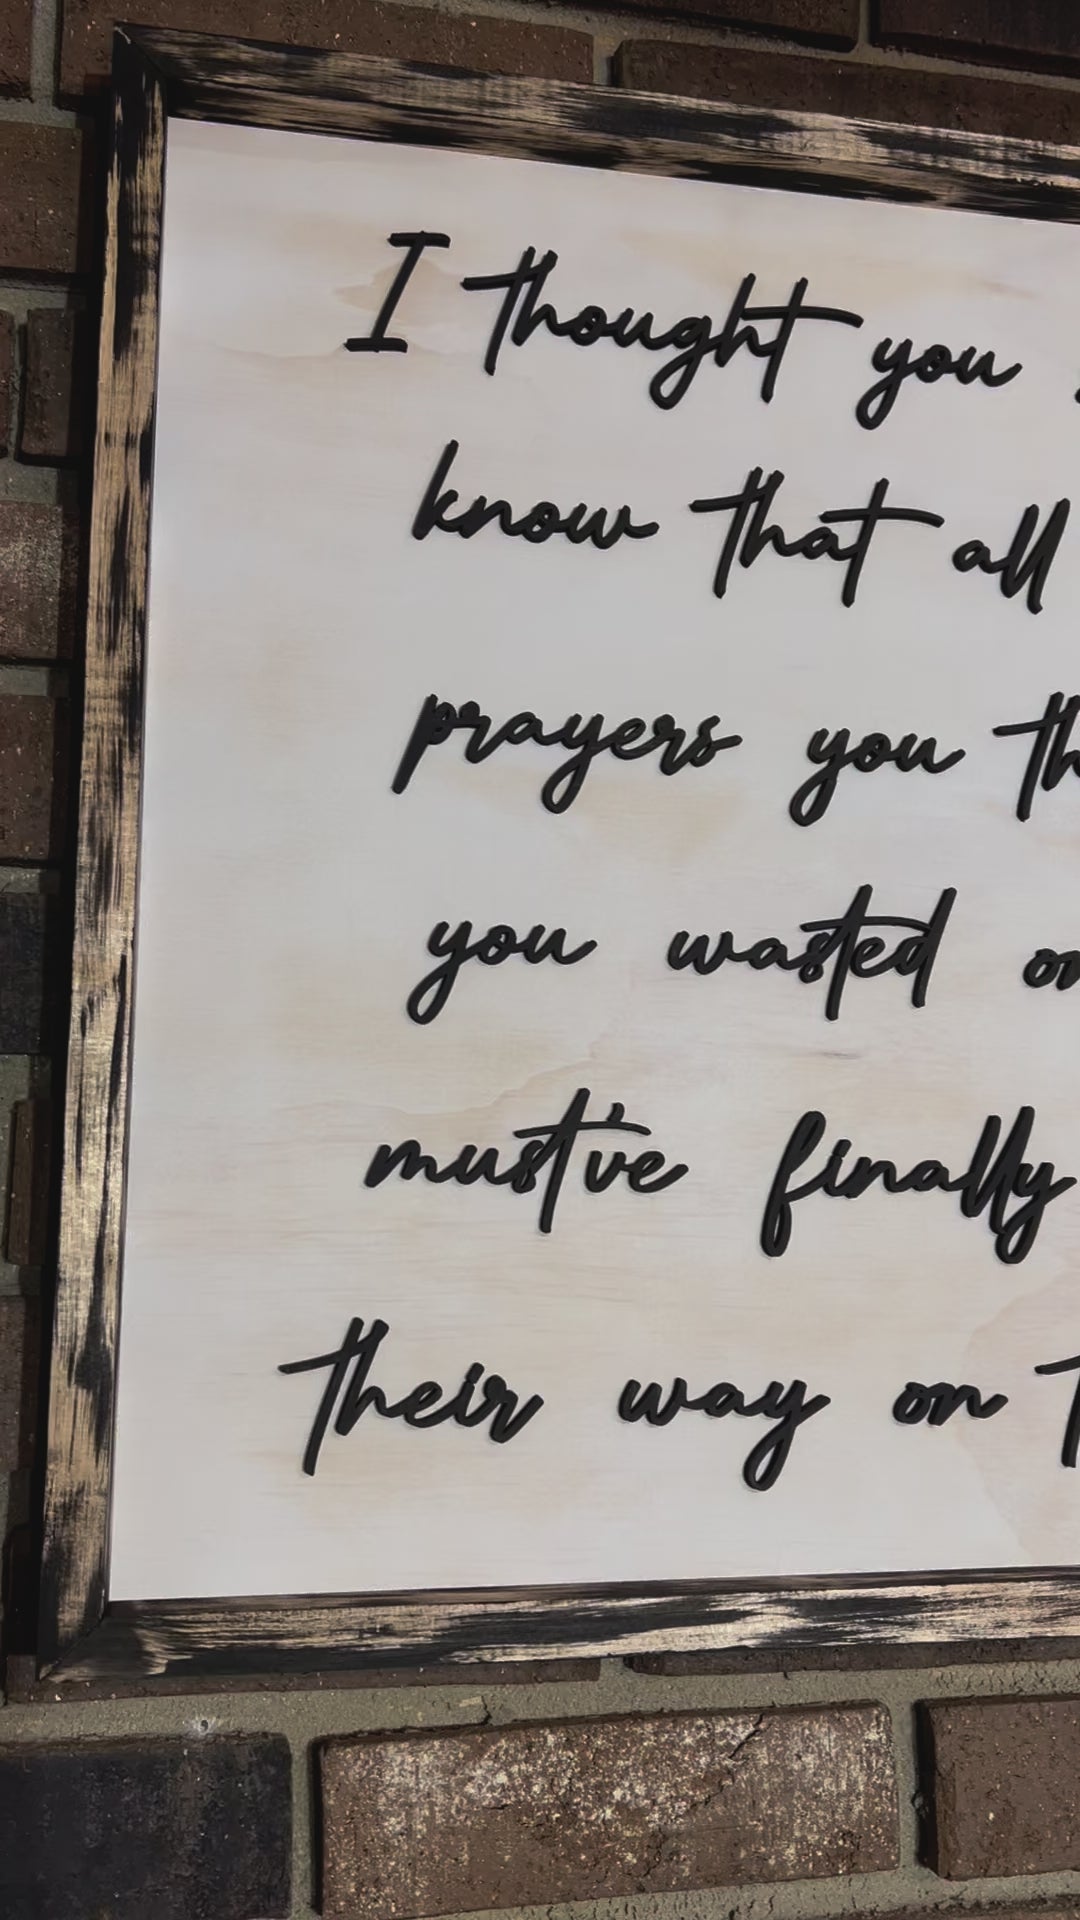 I thought you
know that all
prayers you
you wasted
must've finally
their way on